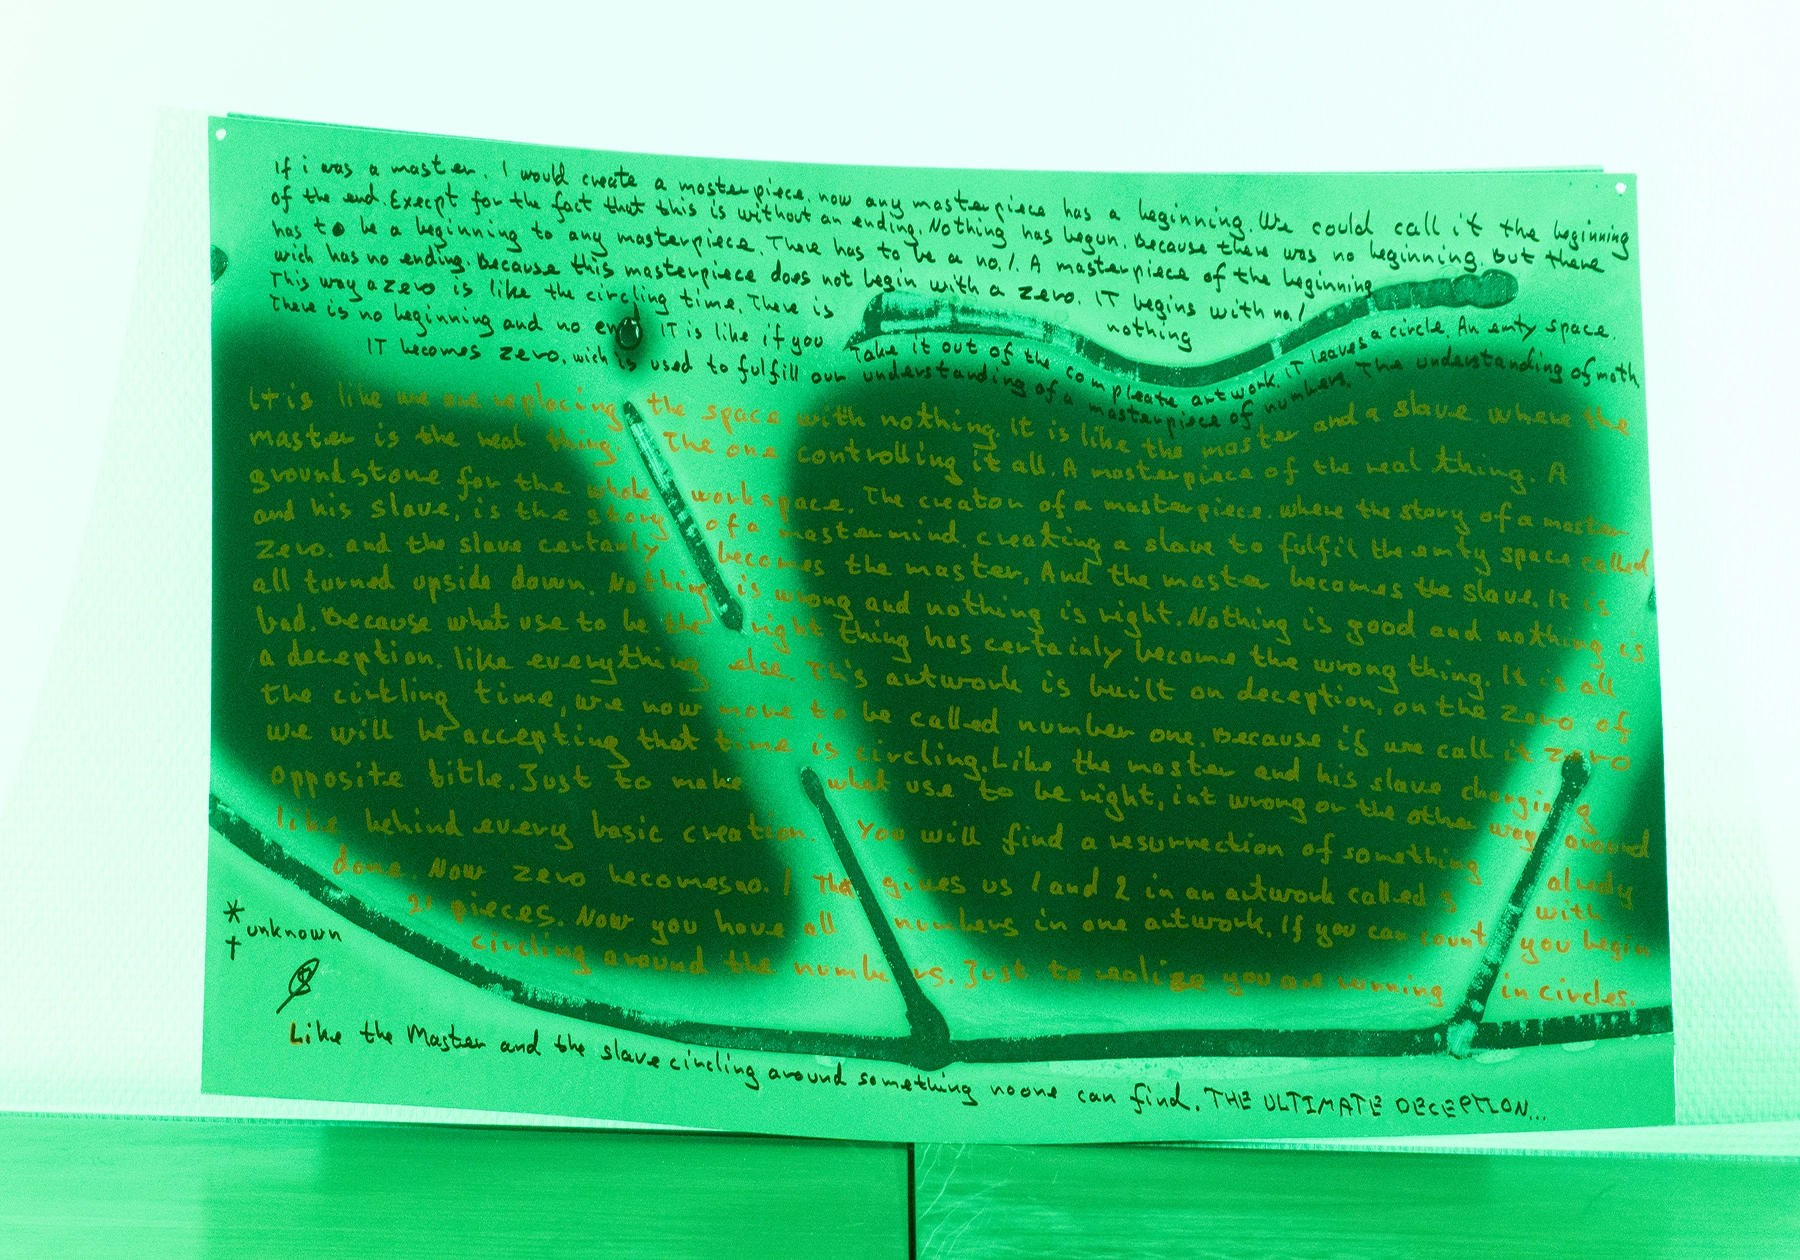 If i was a master. I would create a masterpiece. now any masterpiece has a beginning. We could call it the beginning
of the end. Execpt for the fact that this is without an ending. Nothing has begun. Because there was no beginning. But there
has to be a beginning to any masterpiece. There has to be a no. 1. A masterpiece of the beginning
wich has no ending. Because this masterpiece does not begin with a zero. IT begins with no. 1
This way a zero is like the circling time. There is nothing
There is no beginning and no end IT is like if you Take it out of the compleate artwork. IT leaves a circle. An emty space.
IT becomes zero. wich is used to fulfill our understanding of a masterpiece of numbers. The understanding of math.
It is like we are replacing the space with nothing. It is like the master and a slave where the
master is the real thing. The one controlling it all. A masterpiece of the real thing. A
groundstone for the whole workspace. The creator of a masterpiece. where the story of a master
and his slave, is the story of a mastermind. creating a slave to fulfil the emty space called
zero. and the slave certanly becomes the master. And the master becomes the slave. It is
all turned upside down. Nothing is wrong and nothing is right. Nothing is good and nothing is
bad. Because what use to be the right thing has certainly become the wrong thing. It is all
a deception. like everything else. This artwork is built on deception, on the zero of
the cirkling time, we now move to be called number one. Because if we call it zero
we will be accepting that time is circling. Like the master and his slave changing
opposite title. Just to make what use to be right, int wrong or the other way around
like behind every basic creation. You will find a resurrection of something already
done. Now zero becomes no. 1 That gives us 1 and 2 in an artwork called with
21 pieces. Now you have all numbers in one artwork. If you can count you begin
circling around the numbers. Just to realize you are running in circles.
* unknown
†
Like the Master and the slave circling around something noone can find. THE ULTIMATE DECEPTION...